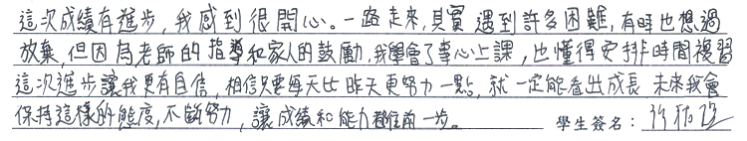 這次成績有進步，我感到很開心。一路走來，其實遇到許多困難，有時也想過
放棄，但因為老師的指導和家人的鼓勵，我學會了專心上課，也懂得安排時間複習
這次進步讓我更有自信，相信只要每天比昨天更努力一點，就一定能看出成長 未來我會
保持這樣的態度，不斷努力，讓成績和能力都往前一步。 學生簽名：許